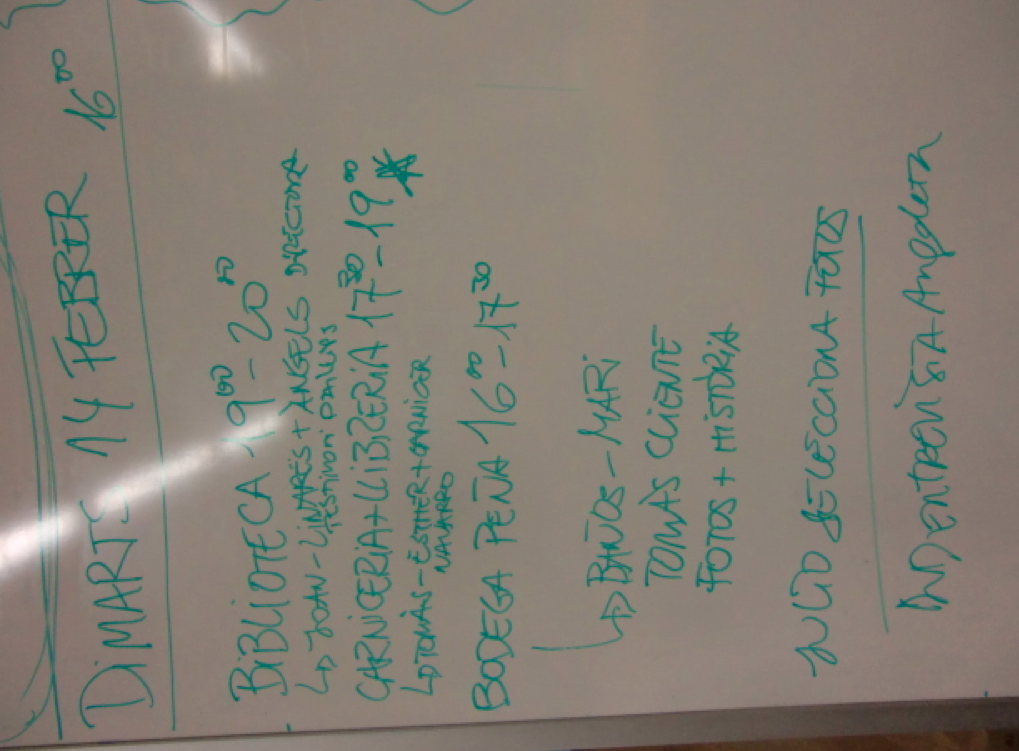 DIMARTS 14 FEBRER 16⁰⁰
BIBLIOTECA 19⁰⁰-20⁰⁰
JOAN-LINARES + ANGELS DIRECTORA
TESTIMONI
CARNICERIA+LLIBRERIA 17³⁰-19⁰⁰
TOMÀS-ESTHER+CARNICER
NAVARRO
BODEGA PEÑA 16⁰⁰-17³⁰
BAÑOS-MARI
TOMÀS CLIENTE
FOTOS + HISTÒRIA
JULIO SELECCIONA FOTOS
ENTREVISTA